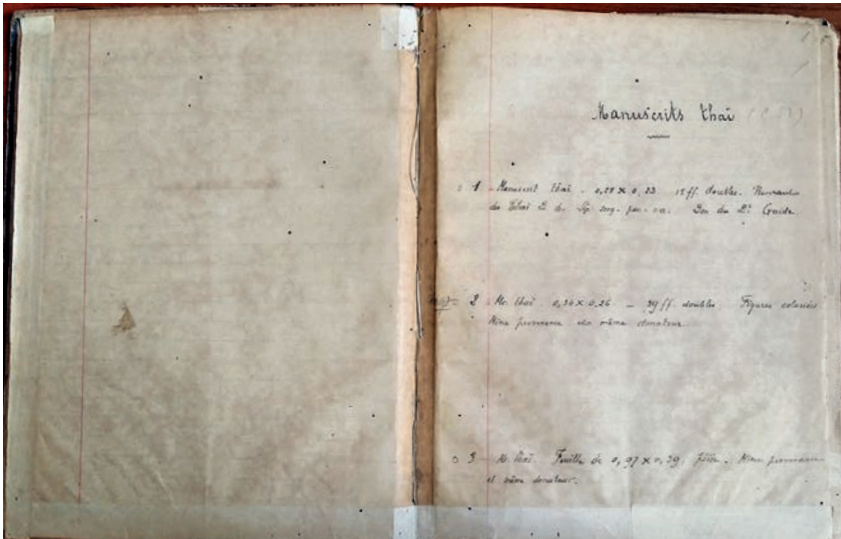 Manuscrits thaï
1 - Manuscrit thaï - 0,28 × 0,23 15 ff. doubles.
des Thaï du Don du Dr Gaide
2 - Ms. thaï 0,36 × 0,26 - 39 ff. doubles. Figures coloriées
Même provenance du même donateur
3 - Ms. thaï. Feuille de 0,97 × 0,39 pliée. Même provenance
et même donateur.